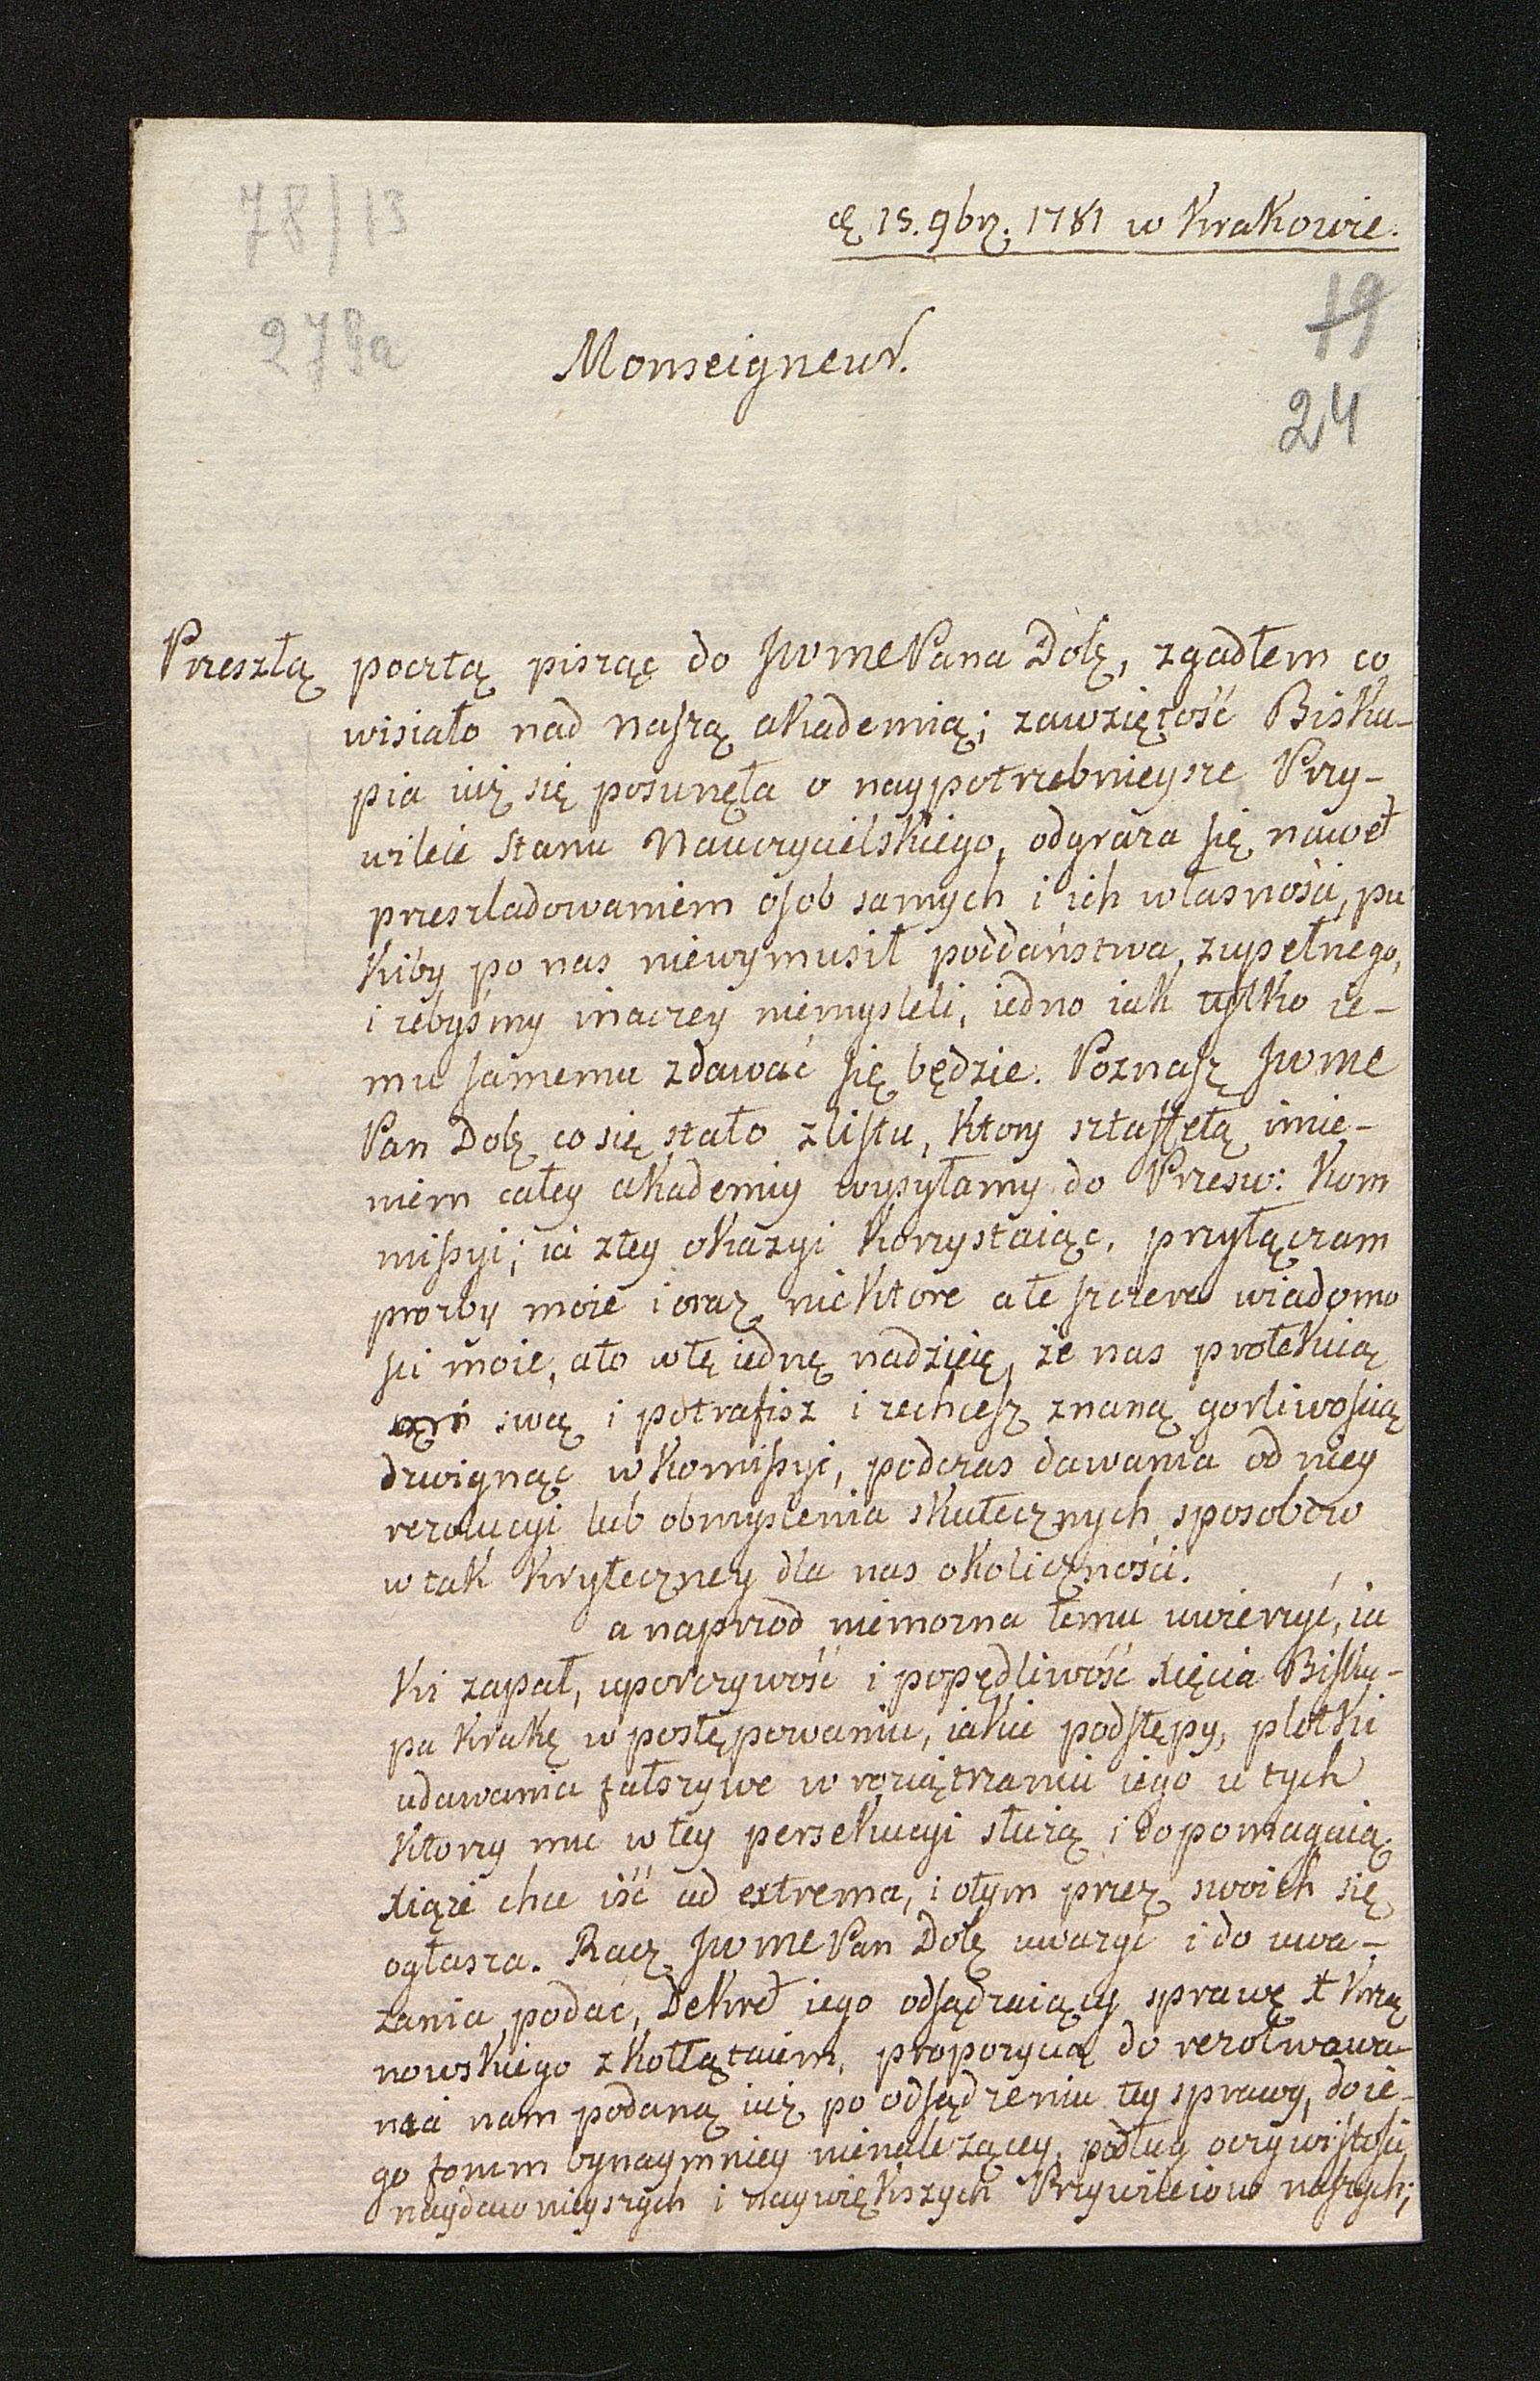 78/13
d. 15. 9br. 1781 w Krakowie.
19
279a
Monseigneur.
24
Przeszłą pocztą pisząc do JWMC Pana Dob, zgadłem co
wisiało nad naszą akademią; zawziętość Bisku-
pia iuż się posunęła o naypotrzebnieysze Przy-
wileie stanu Nauczycielskiego, odgraża się nawet
prześladowaniem osob samych i ich własności, pu
kiby po nas niewymusił poddaństwa zupełnego,
i żebyśmy inaczey niemysleli, iedno iak tylko ie-
mu samemu zdawać się będzie. Poznasz JWMC
Pan Dob co się stało z listu, ktory sztafetą imie-
niem całey akademiy wysyłamy do Przesw: Kom
missyi; ia z tey okazyi korzystaiąc, przyłączam
prozby moie i oraz niektore ale szczere wiadomo
sci moie, a to w tę iednę nadzieię, że nas protekcią
swą i potrafisz i zechcesz znaną gorliwoscią
dzwignąc w komissyi, podczas dawania od niey
rezolucyi lub obmyslenia skutecznych sposobow
w tak krytyczney dla nas okoliczności.
a naprzod niemożna temu uwierzyć, ia
ki zapał, uporczywość i popędliwość Xięcia Bisku-
pa Krakɇ w postępowaniu, iakie podstępy, plotki
udawania fałszywe w roziątrzaniu iego u tych
ktorzy mu w tey persekucyi służą i dopomagaią.
Xiąże chce iść ad extrema, i o tym przez swoich się
ogłasza. Racz JWMC Pan Dob uważyć i do uwa-
żania podac, Dekret iego odsądzaiący sprawę X Krzą
nowskiego z Kołłątaiem, propozycią do rezolwowa-
nia nam podaną iuż po odsądzeniu tey sprawy, do ie-
go forum bynaymniey nienależącey, podług oczywistosci
naydawnieyszych i naywiększych Przywileiow naszych;